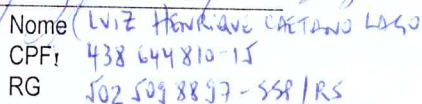 Nome LUIZ HENRIQUE CAETANO LAGO
CPF: 438 644 810-15
RG 502 509 8897-SSP/RS